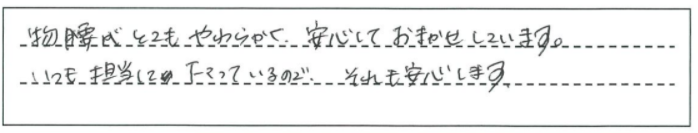 物腰がとてもやわらかく、安心しておまかせしています。
いつも担当して下さっているので、それも安心します。